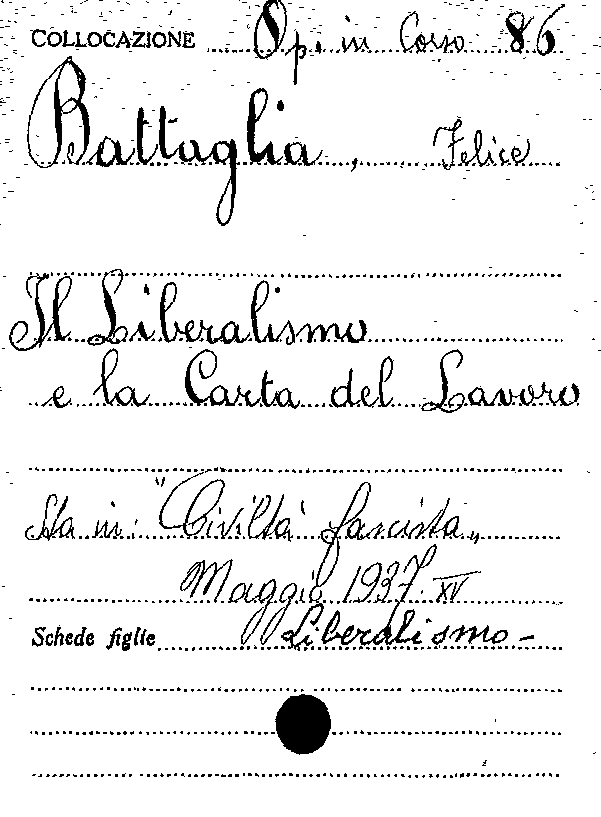 COLLOCAZIONE Op. in Corso 86
Battaglia, Felice
Il Liberalismo
e la Carta del Lavoro
Sta in: "Civiltà fascista„
Maggio 1937. XV
Schede figlie Liberalismo -